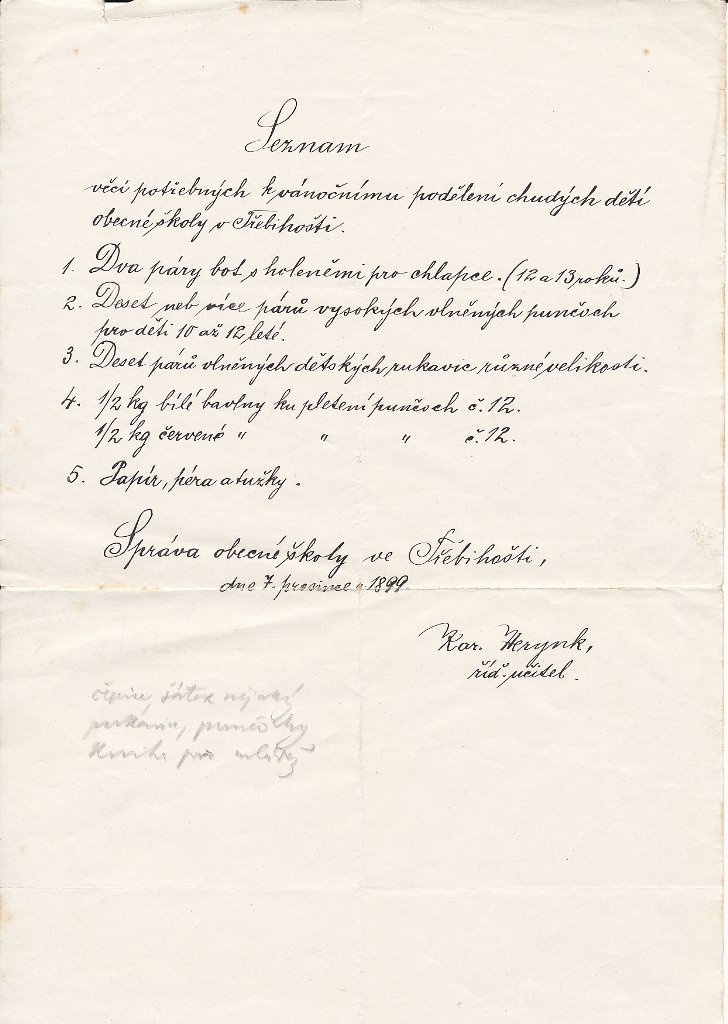 Seznam
věcí potřebných k vánočnímu podělení chudých dětí
obecné školy v Třebihošti.
1. Dva páry bot s holeněmi pro chlapce. (12 a 13 roků.)
2. Deset neb více párů vysokých vlněných punčoch
pro děti 10 až 12 leté.
3. Deset párů vlněných dětských rukavic různé velikosti.
4. 1/2 kg bílé bavlny ku pletení punčoch č. 12.
1/2 kg červené " " " č. 12.
5. Papír, péra a tužky.
Správa obecné školy ve Třebihošti,
dne 7. prosince 1899.
Kar. Werynk,
říd. učitel.
čepice, šátek nějaký
punčochy
kniha pro